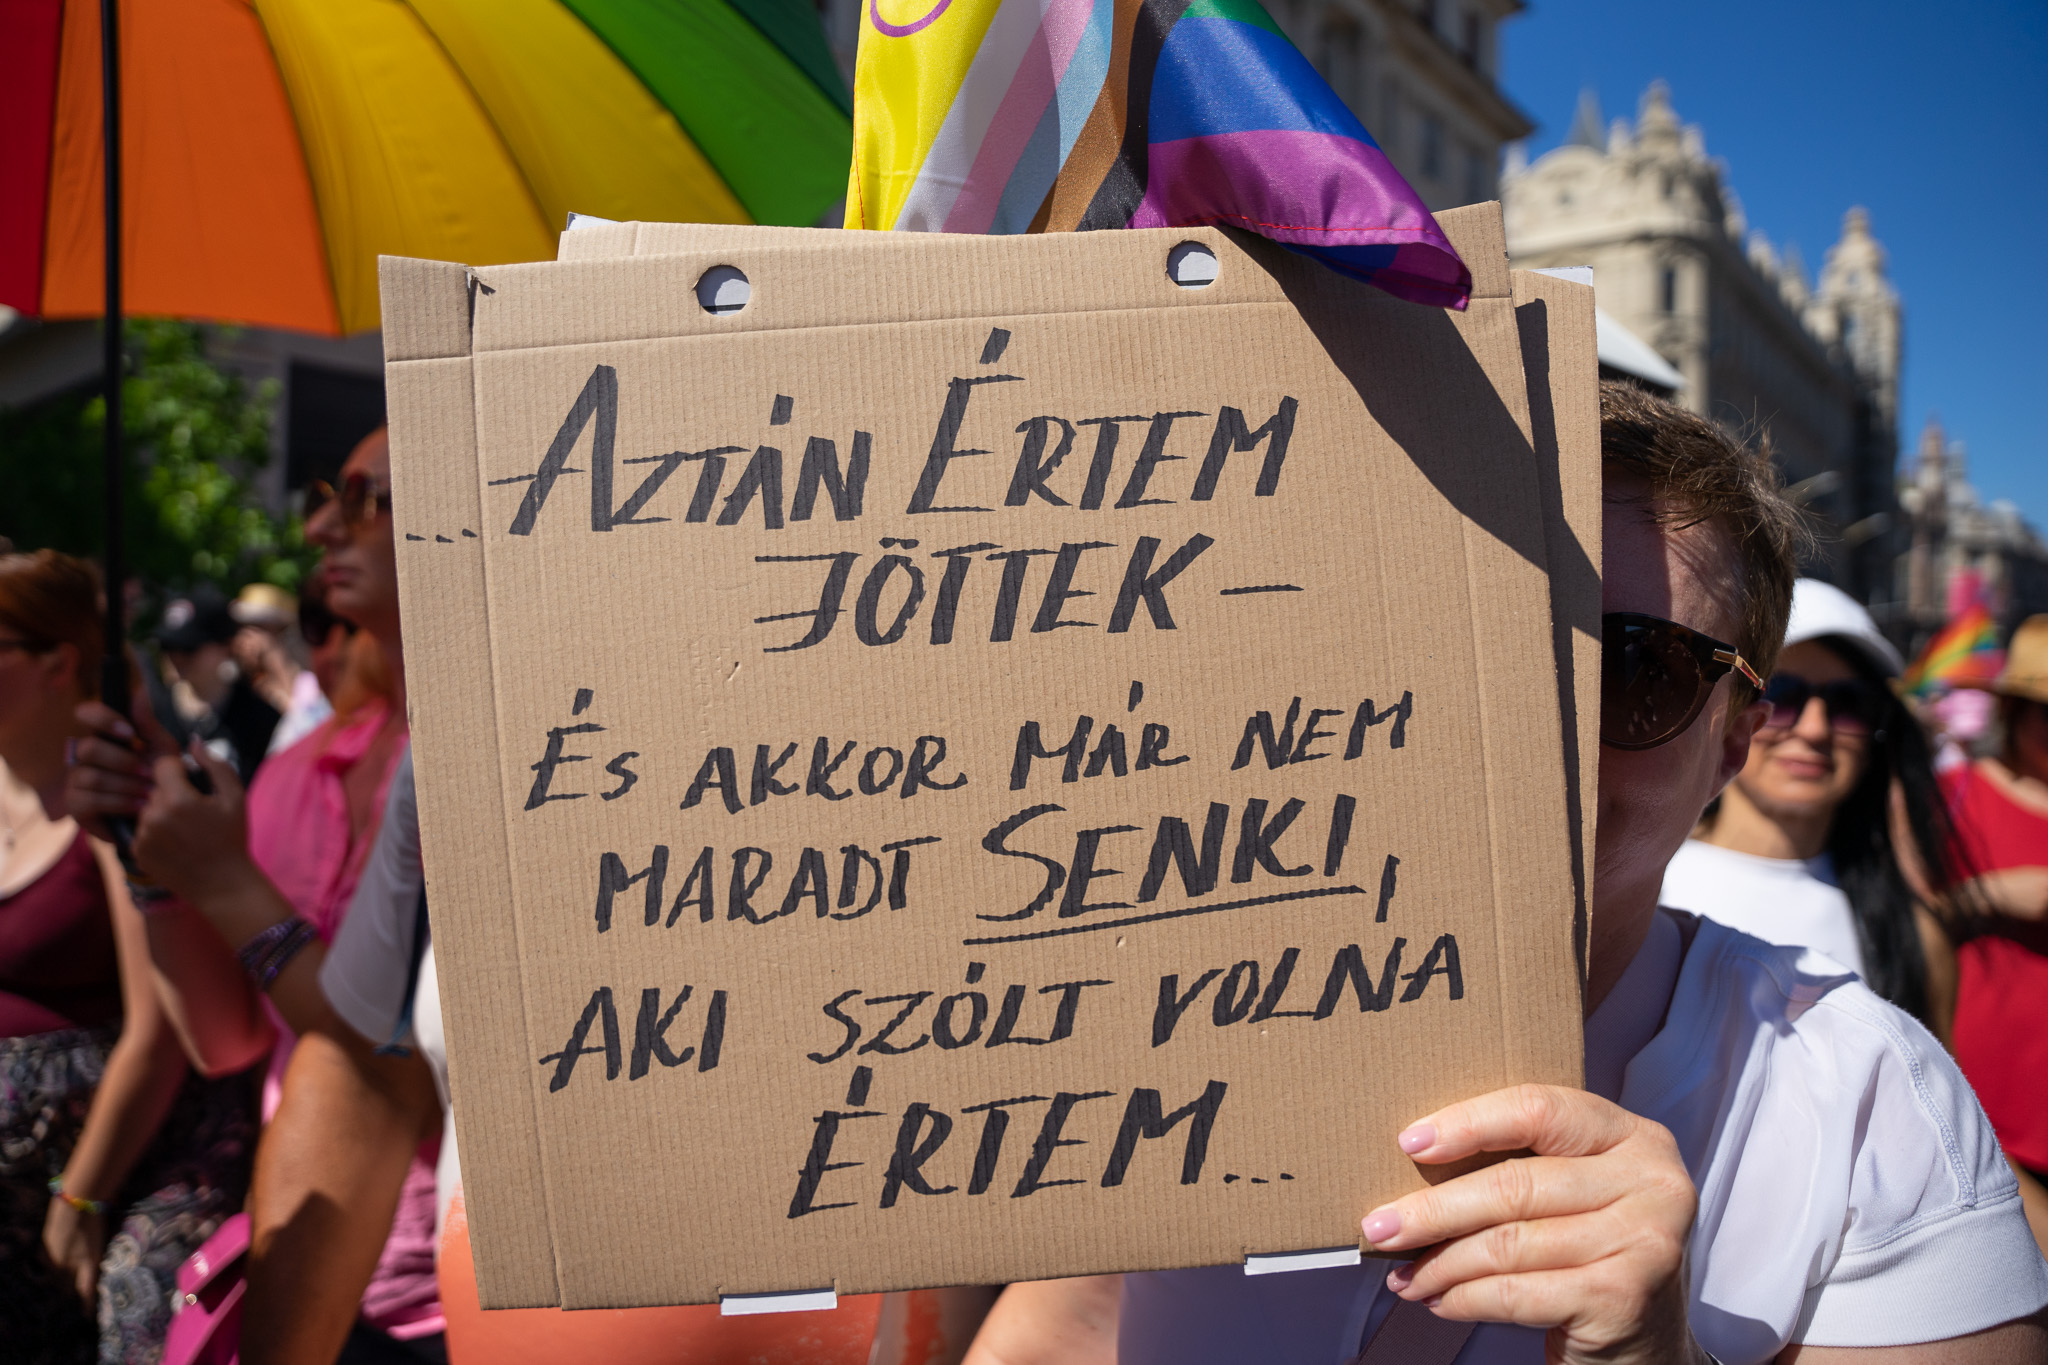 ... AZTÁN ÉRTEM
JÖTTEK –
ÉS AKKOR MÁR NEM
MARADT SENKI,
AKI SZÓLT VOLNA
ÉRTEM...